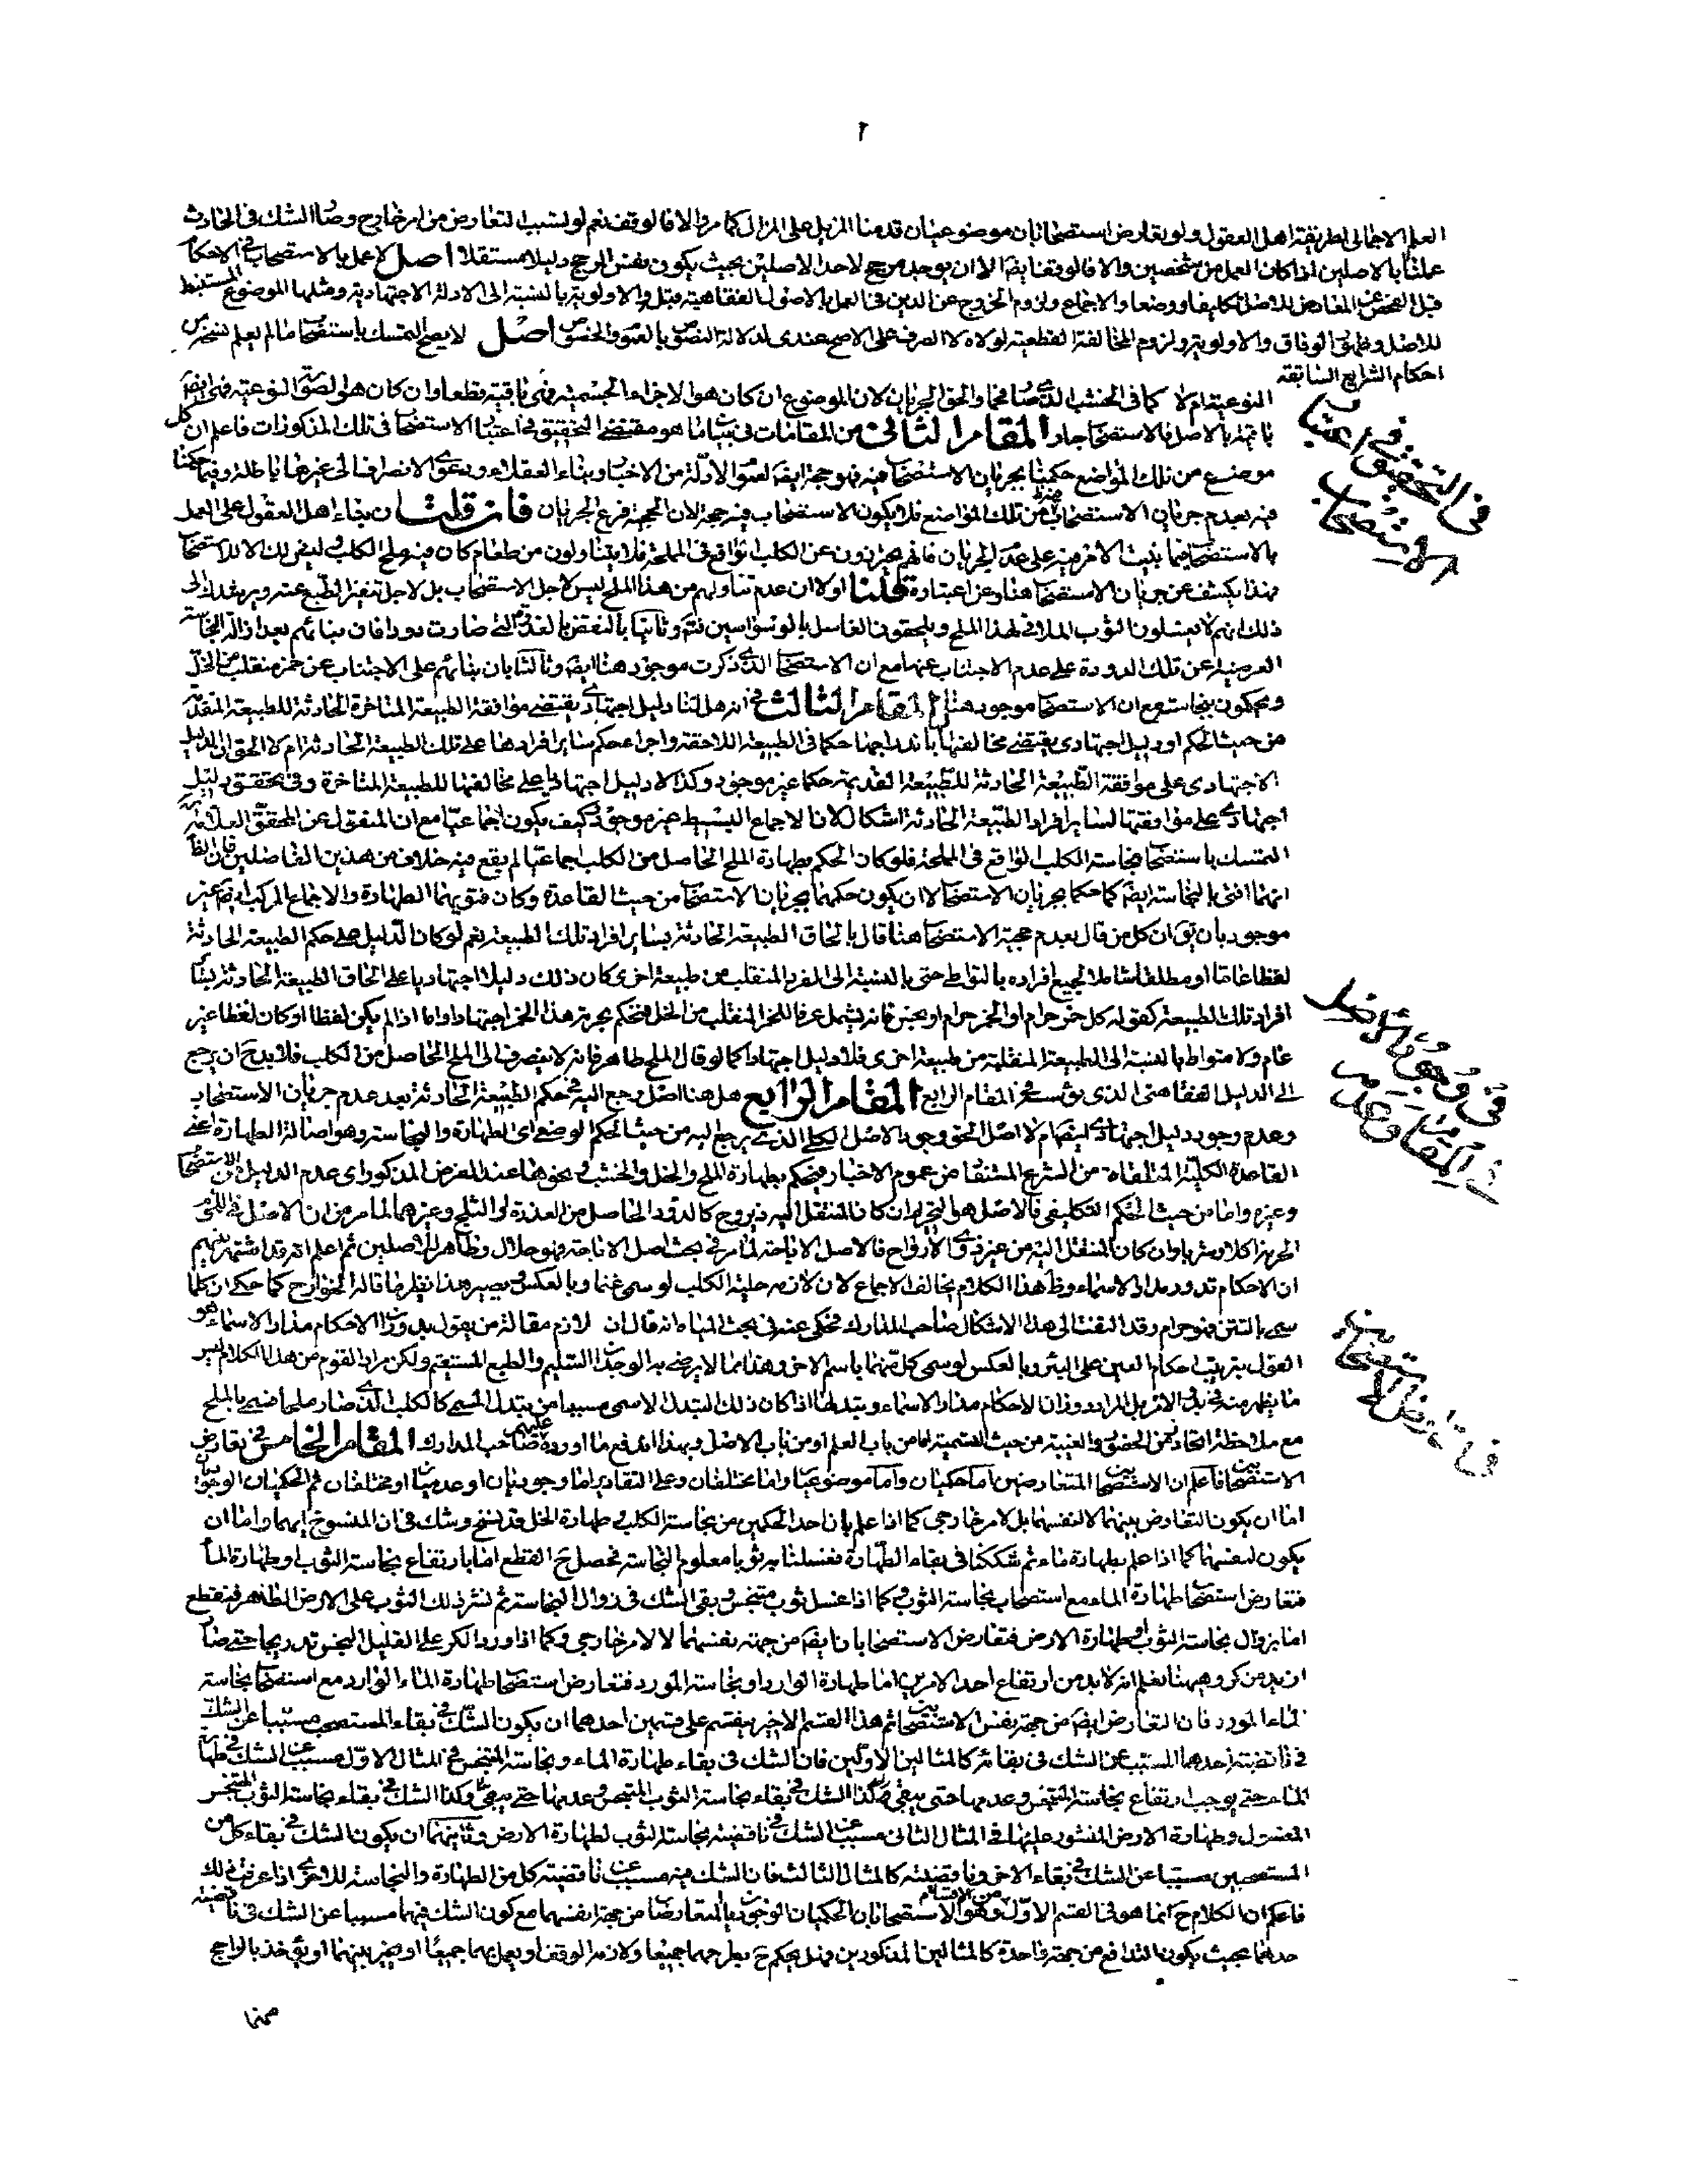 ٢
العلم الاجمالى لطريقة اهل العقول ولو تعارض استصحابان موضوعيان قدمنا المزيل على المزال كما مر والا فالوقف نعم لو تسبب التعارض من امر خارج وصار الشك فى الحادث
عملنا بالاصلين اذا كان العمل من شخصين والا فالوقف ايضا الا ان يوجد مرجح لاحد الاصلين بحيث يكون نفس المرجح دليلا مستقلا اصل لا عمل بالاستصحاب فى الاحكام
قبل الفحص عن المعارض للاصل تكليفا ووضعا والاجماع ولزوم الخروج عن الدين فى العمل بالاصول الفقاهية قبله والاولوية بالنسبة الى الادلة الاجتهادية ومثلها الموضوع المستنبط
للاصل وظهور الوفاق والاولوية ولزوم المخالفة القطعية لولاه لا الصرف على الاصح عندى لدلالة النصوص بالعموم والخصوص اصل لا يصح التمسك باستصحاب ما لم يعلم نسخه من
احكام الشرايع السابقة
النوعية ام لا كما فى الخشب الذى صار فحما والحق الجريان لان الموضوع ان كان هو الاجزاء الجسمية فهى باقية قطعا وان كان هو الصورة النوعية فهى ايضا
باقية بالاصل فالاستصحاب جار المقام الثانى من المقامات فى بيان ما هو مقتضى التحقيق فى اعتبار الاستصحاب فى تلك المذكورات فاعلم ان كل
موضع من تلك المواضع حكمنا بجريان الاستصحاب فيه فهو حجة ايضا لعموم الادلة من الاخبار وبناء العقلاء ودعوى الانصراف الى غيرها باطلة وفيما حكمنا
فيه بعدم جريان الاستصحاب فيه من تلك المواضع فلا يكون الاستصحاب فيه حجة لان الحجية فرع الجريان فان قلت ان بناء اهل العقول على العمل
بالاستصحاب فيما بنيت الامر فيه على عدم الجريان فانهم يحترزون عن الكلب الواقع فى المملحة فلا يتناولون من طعام كان فيه ملح الكلب وليس ذلك الا للاستصحاب
فهذا يكشف عن جريان الاستصحاب هنا وعن اعتباره قلنا اولا ان عدم تناولهم من هذا الملح ليس لاجل الاستصحاب بل لاجل تنفر الطبع عنه ويرشدك الى
ذلك انهم لا يغسلون الثوب الملاقى لهذا الملح ويلحقون الغاسل بالوسواسين فتم وثانيا بالنقض بالعذرة التى صارت دودا فان بنائهم بعد ازالة النجاسة
العرضية عن تلك الدودة على عدم الاجتناب عنها مع ان الاستصحاب الذى ذكرت موجود هنا ايضا وثالثا بان بنائهم على الاجتناب عن خمر منقلب من الخل
ويحكمون بنجاسته مع ان الاستصحاب موجود هنا المقام الثالث فى انه هل لنا دليل اجتهادى يقتضى موافقة الطبيعة المتاخرة الحادثة للطبيعة المتقدمة
من حيث الحكم او دليل اجتهادى يقتضى مخالفتها باندراجها حكما فى الطبيعة اللاحقة واجراء حكم ساير افرادها على تلك الطبيعة الحادثة ام لا الحق ان الدليل
الاجتهادى على موافقة الطبيعة الحادثة للطبيعة القديمة حكما غير موجود وكذا لا دليل اجتهاديا على مخالفتها للطبيعة المتاخرة وفى تحقق دليل
اجتهادى على موافقتها لساير افراد الطبيعة الحادثة اشكال لان الاجماع البسيط غير موجود كيف يكون اجماعيا مع ان المنقول عن المحقق والعلامة
التمسك باستصحاب نجاسة الكلب الواقع فى المملحة فلو كان الحكم بطهارة الملح الحاصل من الكلب اجماعيا لم يقع فيه خلاف من هذين الفاضلين فان الظاهر
انهما افتيا بالنجاسة ايضا كما حكما بجريان الاستصحاب الا ان يكون حكمهما بجريان الاستصحاب من حيث القاعدة وكان فتويهما الطهارة والاجماع المركب ايضا غير
موجود بان يق ان كل من قال بعدم حجية الاستصحاب هنا قال بالحاق الطبيعة الحادثة بساير افراد تلك الطبيعة نعم لو كان الدليل على حكم الطبيعة الحادثة
لفظا عاما او مطلقا شاملا لجميع افراده بالتواطى حتى بالنسبة الى الفرد المنقلب من طبيعة اخرى كان ذلك دليلا اجتهاديا على الحاق الطبيعة الحادثة بساير
افراد تلك الطبيعة كقوله كل خمر حرام او الخمر حرام او نجس فانه يشمل عرفا للخمر المنقلب من الخل فنحكم بحرمة هذا الخمر اجتهادا واما اذا لم يكن لفظا او كان لفظا غير
عام ولا متواط بالنسبة الى الطبيعة المنقلبة من طبيعة اخرى فلا دليل اجتهادا كما لو قال الملح طاهر فانه لا ينصرف الى الملح الحاصل من الكلب فلا بد ح ان يرجع
الى الدليل الفقاهتى الذى يؤسس فى المقام الرابع المقام الرابع هل هنا اصل يرجع اليه فى حكم الطبيعة الحادثة بعد عدم جريان الاستصحاب
وعدم وجود دليل اجتهادى ايضا ام لا اصل الحق وجود الاصل الكلى الذى يرجع اليه من حيث الحكم الوضعى اى الطهارة والنجاسة وهو اصالة الطهارة اعنى
القاعدة الكلية المتلقاة من الشرع المستفاد من عموم الاخبار فيحكم بطهارة الملح والخل والخشب ونحوها عند الفرض المذكور اى عدم الدليل من الاستصحاب
وغيره واما من حيث الحكم التكليفى فالاصل هو التحريم ان كان المنتقل اليه ذى روح كالدود الحاصل من العذرة او الثلج وغيرهما لما مر من ان الاصل فى اللحوم
الحرمة اكلا وشربا وان كان المنتقل اليه من غير ذوى الارواح فالاصل الاباحة لما مر فى بحث اصل الاباحة فهو حلال وظاهر للاصلين ثم اعلم انه قد اشتهر بينهم
ان الاحكام تدور مدار الاسماء وظ هذا الكلام يخالف الاجماع لان لازمه حلية الكلب لو سمى غنما وبالعكس ويصير هذا نظير ما قاله الخوارج كما حكى ان كلما
سمى بالتتن فهو حرام وقد التفت الى هذا الاشكال صاحب المدارك فحكى عنه فى بحث المياه انه قال ان لازم مقالة من يقول بدوران الاحكام مدار الاسماء هو
القول بترتيب احكام العين على البئر وبالعكس لو سمى كل منهما باسم الاخر وهذا مما لا يرضى به الوجدان السليم والطبع المستقيم ولكن مراد القوم من هذا الكلام ليس
ما يظهر منه فى بدو الامر بل المراد دوران الاحكام مدار الاسماء وتبدلها اذا كان ذلك التبدل الاسمى مسببا من تبدل المسمى كالكلب الذى صار ملحا فسمى بالملح
مع ملاحظة اتحاد زمن الحضور والغيبة من حيث التسمية اما من باب العلم او من باب الاصل وبهذا اندفع ما اورده عليهم صاحب المدارك المقام الخامس فى تعارض
الاستصحابين فاعلم ان الاستصحابين المتعارضين اما حكميان واما موضوعيان واما مختلفان وعلى التقادير اما وجوديان او عدميان او مختلفان ثم الحكميان الوجوديان
اما ان يكون التعارض بينهما لا لنفسهما بل لامر خارجى كما اذا علم بان احد الحكمين من نجاسة الكلب و طهارة الخل قد نسخ وشك فى ان المنسوخ ايهما واما ان
يكون لنفسهما كما اذا علم بطهارة ماء ثم شككنا فى بقاء الطهارة فغسلنا به ثوبا معلوم النجاسة فحصل ح القطع اما بارتفاع نجاسة الثوب او طهارة الماء
فتعارض استصحاب طهارة الماء مع استصحاب نجاسة الثوب وكما اذا غسل ثوب متنجس وبقى الشك فى زوال النجاسة ثم نشر ذلك الثوب على الارض الطاهر فنقطع
اما بزوال نجاسة الثوب او طهارة الارض فتعارض الاستصحابان ايضا من جهة نفسهما لا لامر خارجى وكما اذا ورد الكر على القليل النجس تدريجا حتى صار
ازيد من كر وهيهنا نعلم انه لا بد من ارتفاع احد الامرين اما طهارة الوارد او نجاسة المورد فتعارض استصحاب طهارة الماء الوارد مع استصحاب نجاسة
الماء المورد فان التعارض ايضا من جهة نفس الاستصحابين ثم هذا القسم الاخير ينقسم على قسمين احدهما ان يكون الشك فى بقاء المستصحب مسببا عن الشك
فى ناقضية احدهما المستسبب عن الشك فى بقائه كالمثالين الاولين فان الشك فى بقاء طهارة الماء ونجاسة المتنجس فى المثال الاول مسبب عن الشك فى طهارة
الماء حتى يوجب ارتفاع نجاسة المتنجس وعدمها حتى يبقى وكذا الشك فى بقاء نجاسة الثوب المتنجس وعدمها حتى يبقى وكذا الشك فى بقاء نجاسة الثوب المتنجس
المغسول وطهارة الارض المنشور عليها فى المثال الثانى مسبب عن الشك فى ناقضية نجاسة الثوب لطهارة الارض وثانيهما ان يكون الشك فى بقاء كل من
المستصحبين مسببا عن الشك فى بقاء الاخر وناقضيته كالمثال الثالث فان الشك فيه مسبب عن ناقضية كل من الطهارة والنجاسة للاخرى اذا عرفت ذلك
فاعلم ان الكلام ح انما هو فى القسم الاول من الاقسام وهو الاستصحابان الحكميان الوجوديان المتعارضان من جهة نفسهما مع كون الشك فيهما مسببا عن الشك فى ناقضية
احدهما بحيث يكون التدافع من جهة واحدة كالمثالين المذكورين فهل يحكم ح بطرحهما جميعا ولازمه الوقف او يعمل بهما جميعا او يخير بينهما او يؤخذ بالراجح
منهما
فى التحقيق فى اعتبار
الاستصحاب